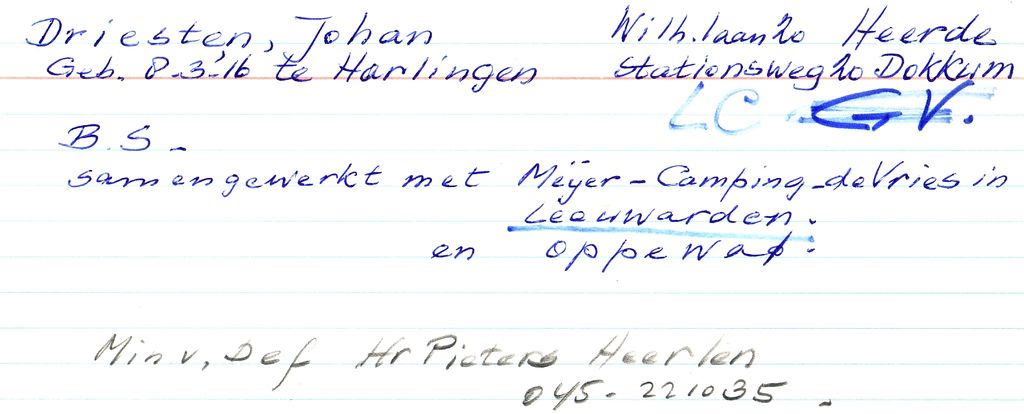 Driesten, Johan Wilh.laan 20 Heerde
Geb. 8-3-16 te Harlingen Stationsweg 20 Dokkum
LC GV.
B.S-
samengewerkt met Meijer-Camping-de Vries in
Leeuwarden.
en oppewal.
Min v, Def Hr Pieters Heerlen
045-221035-